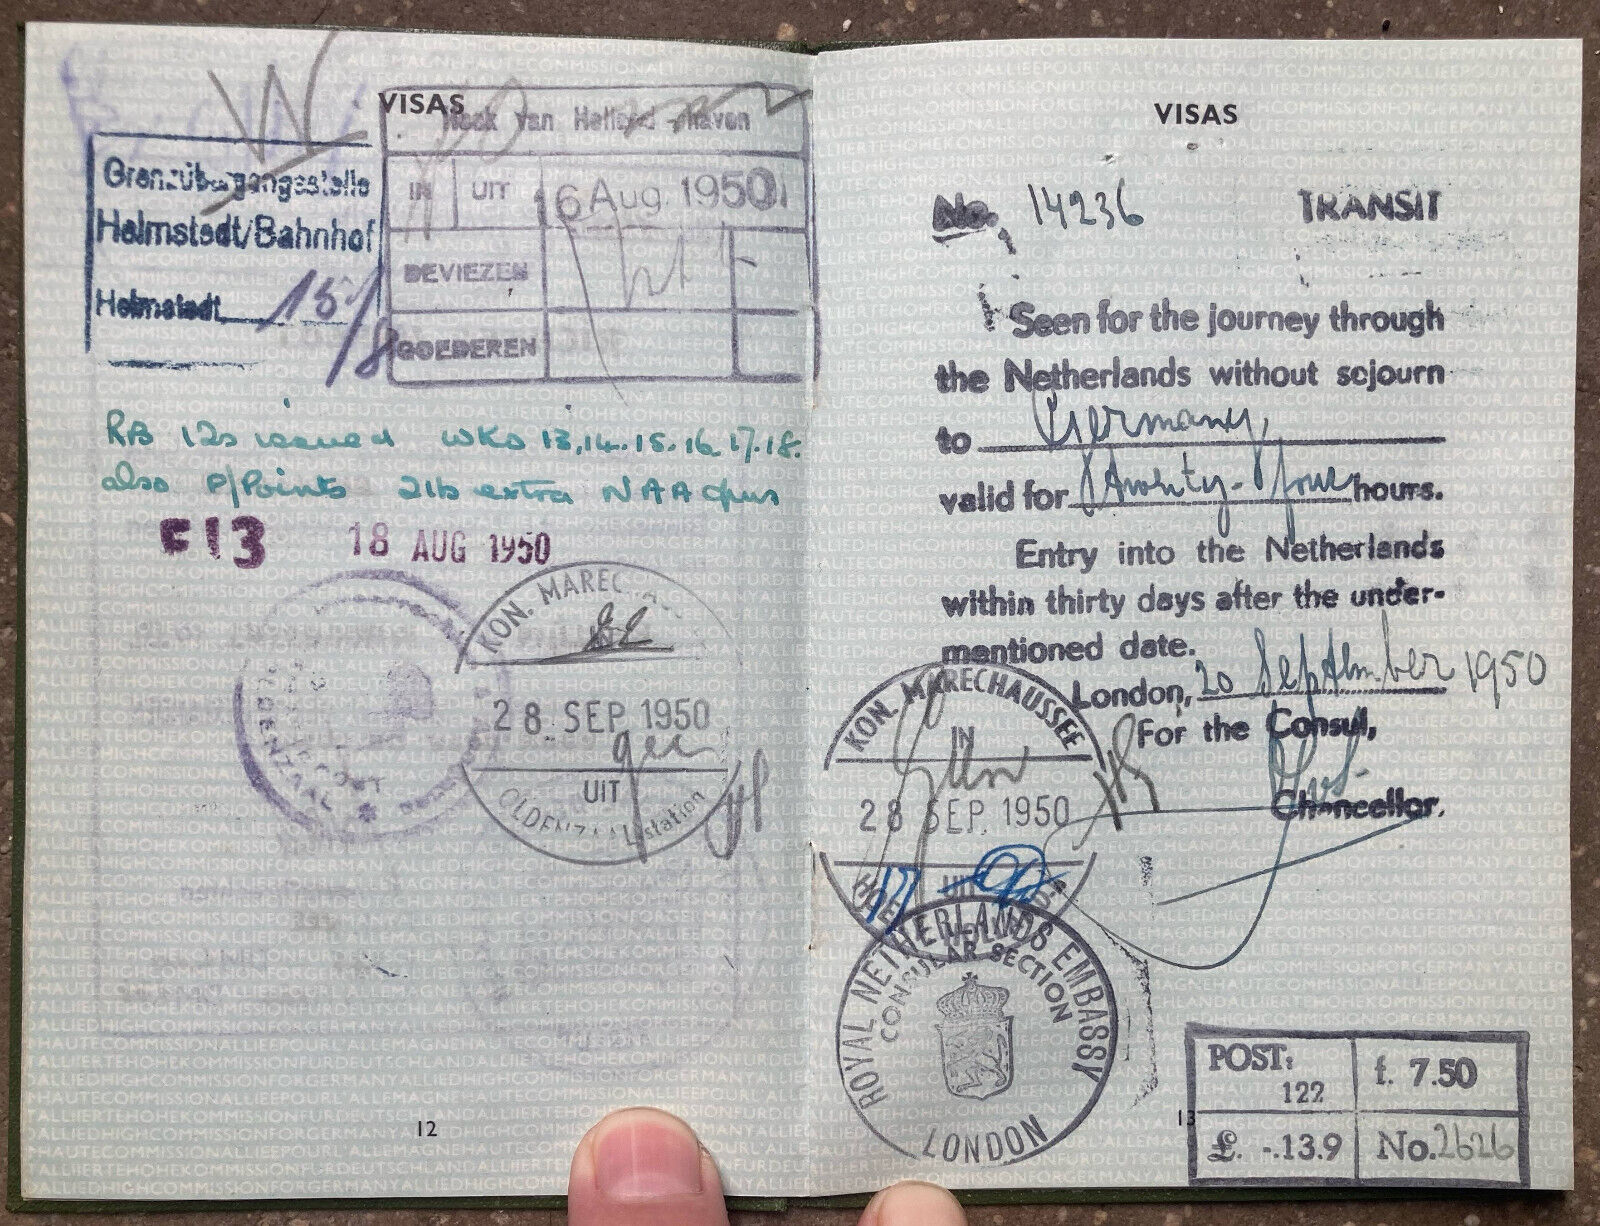 VISAS
Hoek van Holland-haven
IN UIT 16 Aug. 1950
DEVIEZEN
GOEDEREN
Grenzübergangsstelle
Helmstedt/Bahnhof
Helmstedt, 15/8
RB 12s issued wks 13.14.15.16.17.18.
also P/Points 2lb extra NAA
F13 18 AUG 1950
OLDENZAAL
KON. MARECHAUSSEE
28. SEP. 1950
UIT
OLDENZAAL station
12
VISAS
No. 14236 TRANSIT
Seen for the journey through
the Netherlands without sojourn
to Germany,
valid for twenty-four hours.
Entry into the Netherlands
within thirty days after the under-
mentioned date.
London, 20 September 1950
For the Consul,
Chancellor.
KON. MARECHAUSSEE
IN
28 SEP. 1950
UIT
ROYAL NETHERLANDS EMBASSY
CONSULAR SECTION
LONDON
POST: 122 f. 7.50
£. -.13.9 No. 2626
13